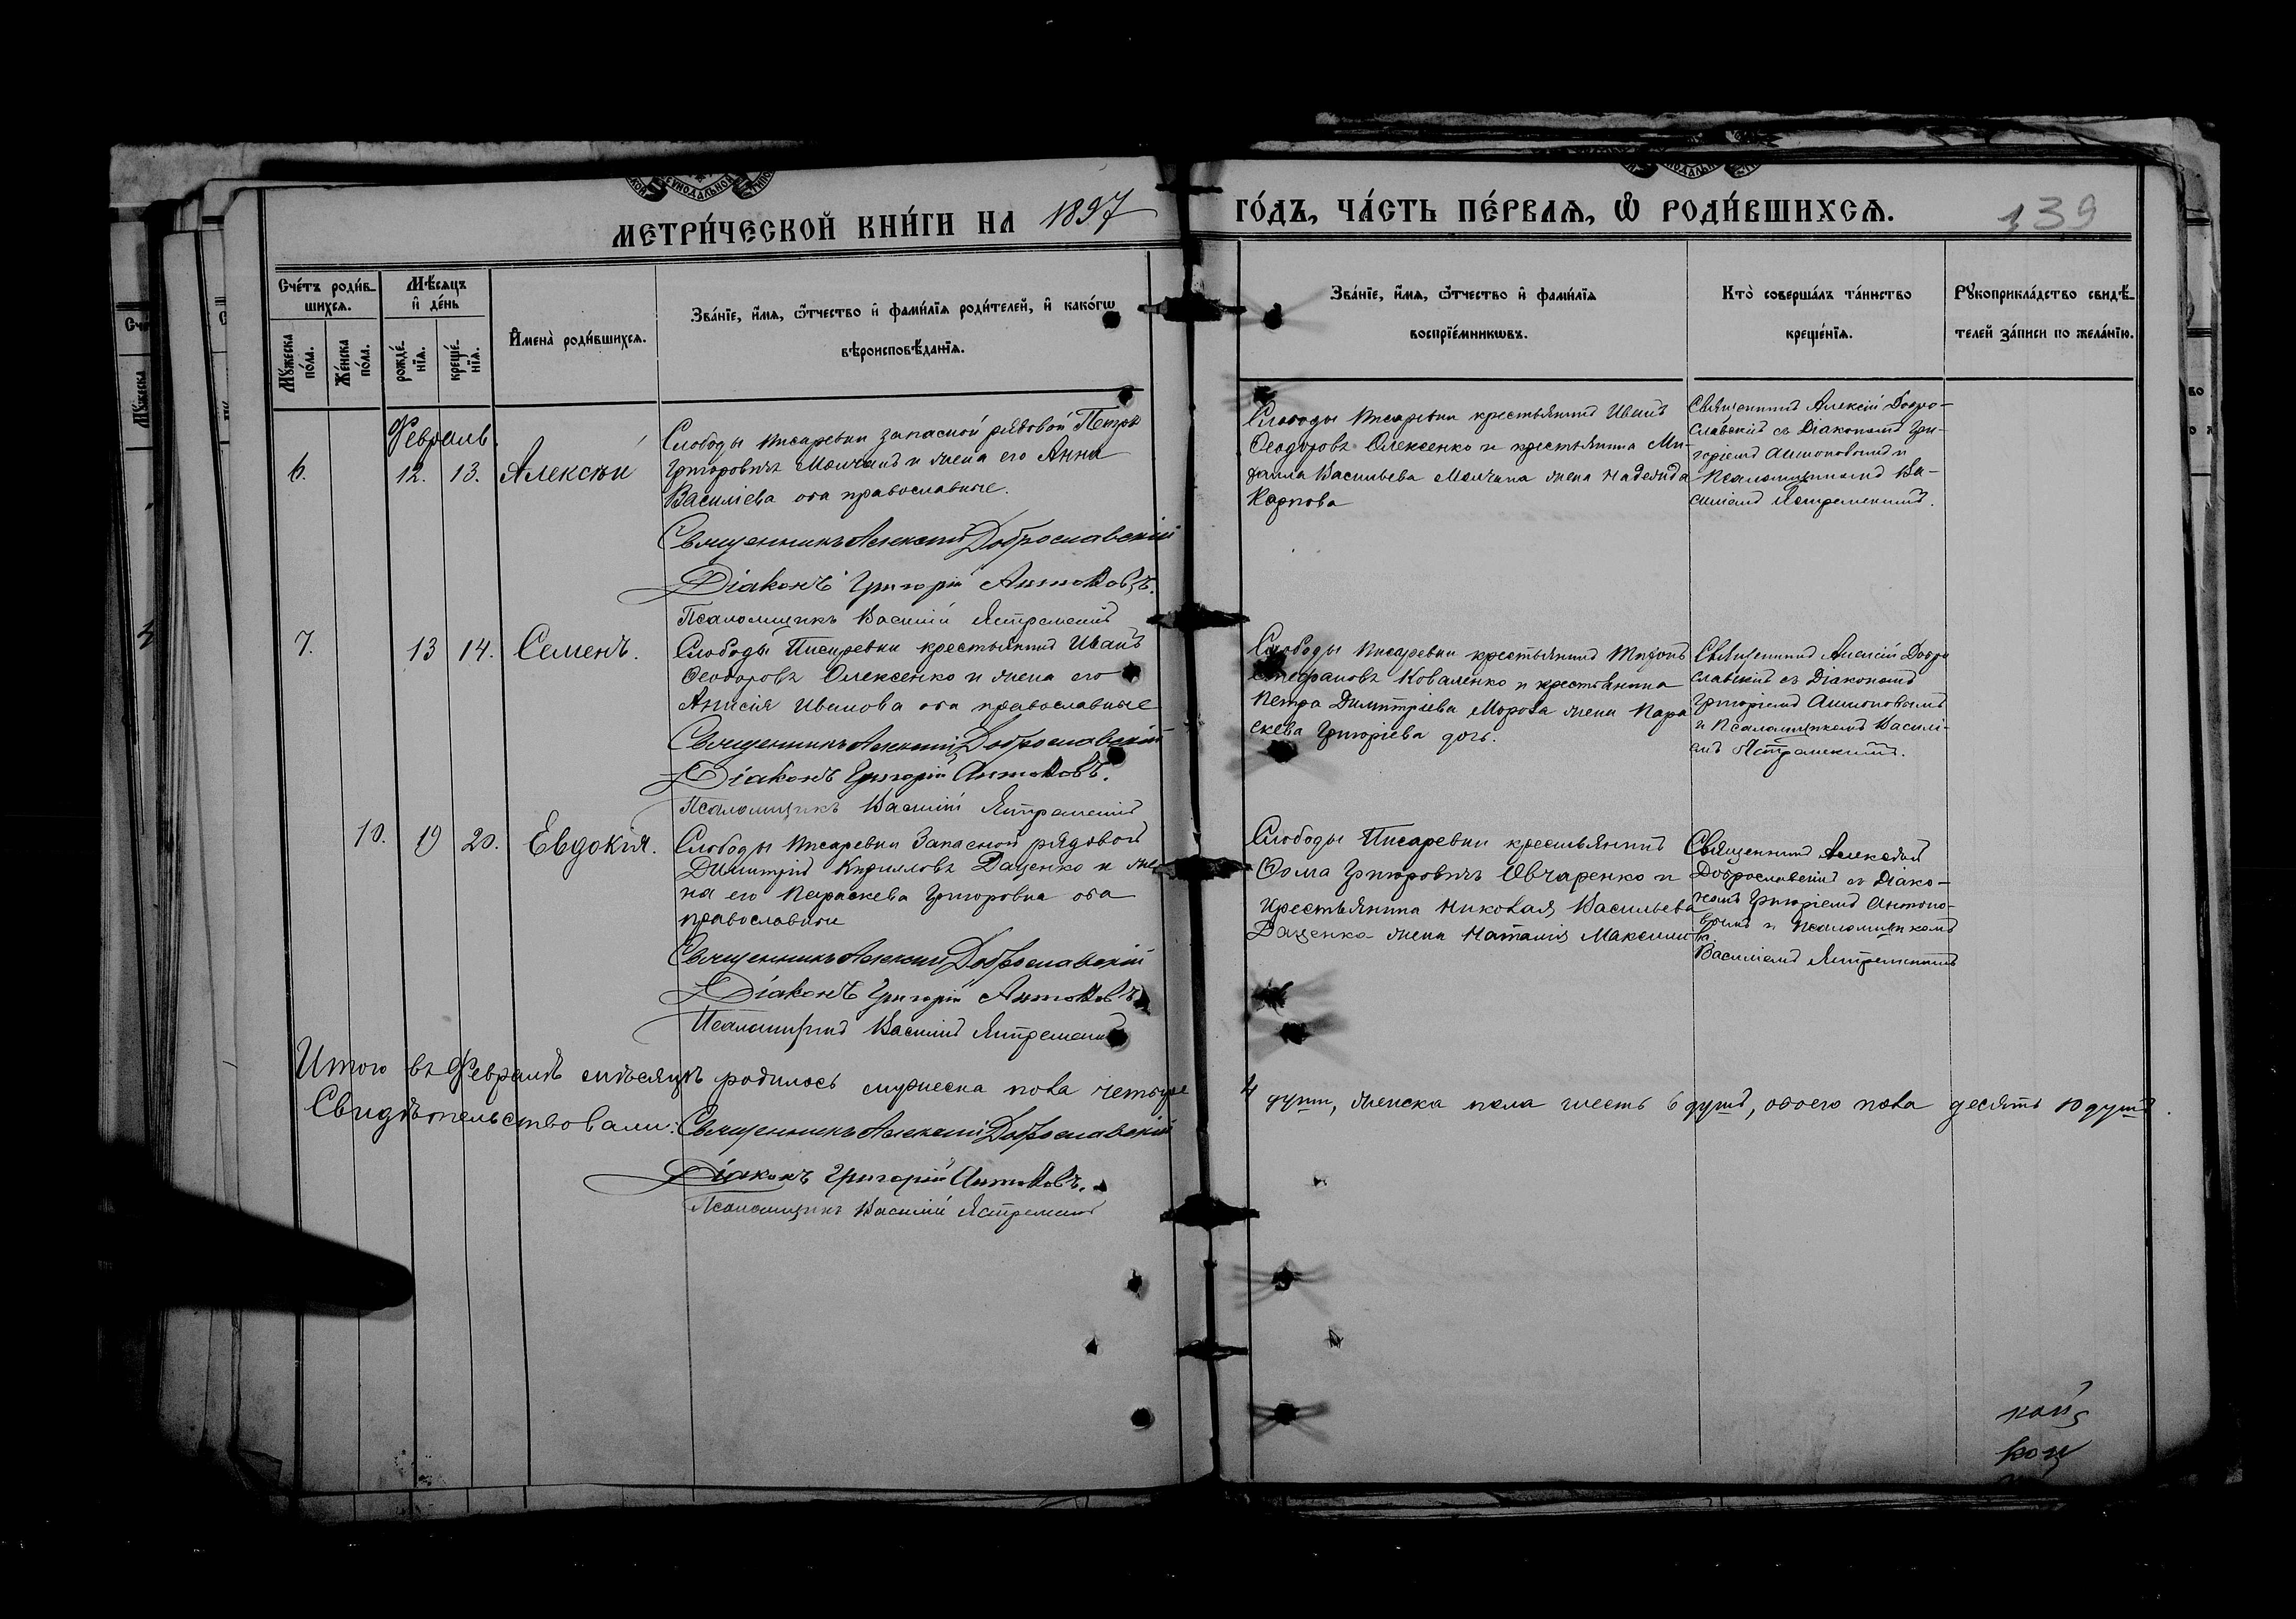 МЕТРИ́ЧЕСКОЙ КНИ́ГИ НА 1897
ГО́ДЪ, ЧА́СТЬ ПЕ́РВАЯ, Ѡ҆ РОДИ́ВШИХСЯ.
139
Сче́тъ роди́в-
шихся.
Мꙋ́жеска по́ла.
Же́нска по́ла.
Мѣ́сяцъ
и҆ де́нь
рожде́-
нїя.
креще́-
нїя.
И҆мена̀ роди́вшихся.
Зва́нїе, и҆́мя, ѻ҆́тчество и҆ фами́лїя роди́телей, и҆ како́гѡ
вѣроисповѣ́данїя.
Зва́нїе, и҆́мя, ѻ҆́тчество и҆ фами́лїя
воспрїе́мникѡвъ.
Кто̀ соверша́лъ та́инство
креще́нїя.
Рꙋкоприкла́дство свидѣ́-
телей за́писи по жела́нїю.
Февраль.
6. 12. 13. Алексѣй
Слободы Писаревки запасной рядовой Петръ
Григоровичъ Молчанъ и жена его Анна
Василіева оба православные.
Священникъ Алексій Доброславскій
Діаконъ Григорій Антоновъ.
Псаломщикъ Василій Ястремскій
Слободы Писаревки крестьянинъ Иванъ
Ѳеодоровъ Олексенко и крестьянина Ми-
хаила Васильева Молчана жена Надежда
Карпова
Священникъ Алексій Добро-
славскій съ Діакономъ Гри-
горіемъ Антоновымъ и
Псаломщикомъ Ва-
силіемъ Ястремскимъ.
7. 13 14. Семенъ.
Слободы Писаревки крестьянинъ Иванъ
Ѳеодоровъ Олексенко и жена его
Анисія Иванова оба православные
Священникъ Алексій Доброславскій
Діаконъ Григорій Антоновъ.
Псаломщикъ Василій Ястремскій
Слободы Писаревки крестьянинъ
Стефановъ Коваленко и крестьянина
Петра Димитріева Мороза жена Пара
скева Григоріева дочь.
Священникъ Алексій Добро
славскій съ Діакономъ
Григоріемъ Антоновымъ
и Псаломщикомъ Василі-
емъ Ястремскимъ.
10. 19 20. Евдокія.
Слободы Писаревки Запасной рядовой
Димитрій Кирилловъ Даценко и же
на его Параскева Григоровна оба
православные
Священникъ Алексій Доброславскій
Діаконъ Григорій Антоновъ
Псаломщикъ Василій Ястремскій
Слободы Писаревки крестьянинъ
Ѳома Григоровичъ Овчаренко и
крестьянина Николая Васильева
Даценка жена Наталія Максимо
ва
Священникъ Алексѣй
Доброславскій съ Діако-
номъ Григоріемъ Антоно-
вымъ и Псаломщикомъ
Василіемъ Ястремскимъ
Итого въ Февралѣ мѣсяцѣ родилось мужеска пола четыре
4 душъ, женска пола шесть 6 душъ, обоего пола десять 10 душъ.
Свидѣтельствовали: Священникъ Алексій Доброславскій
Діаконъ Григорій Антоновъ.
Псаломщикъ Василій Ястремскій